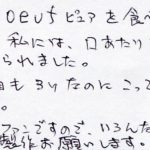 oeufピュアを食べ
私には、口あたり
られました。
もろりたのにこって
ファンですので、いろんな
製作お願いします。